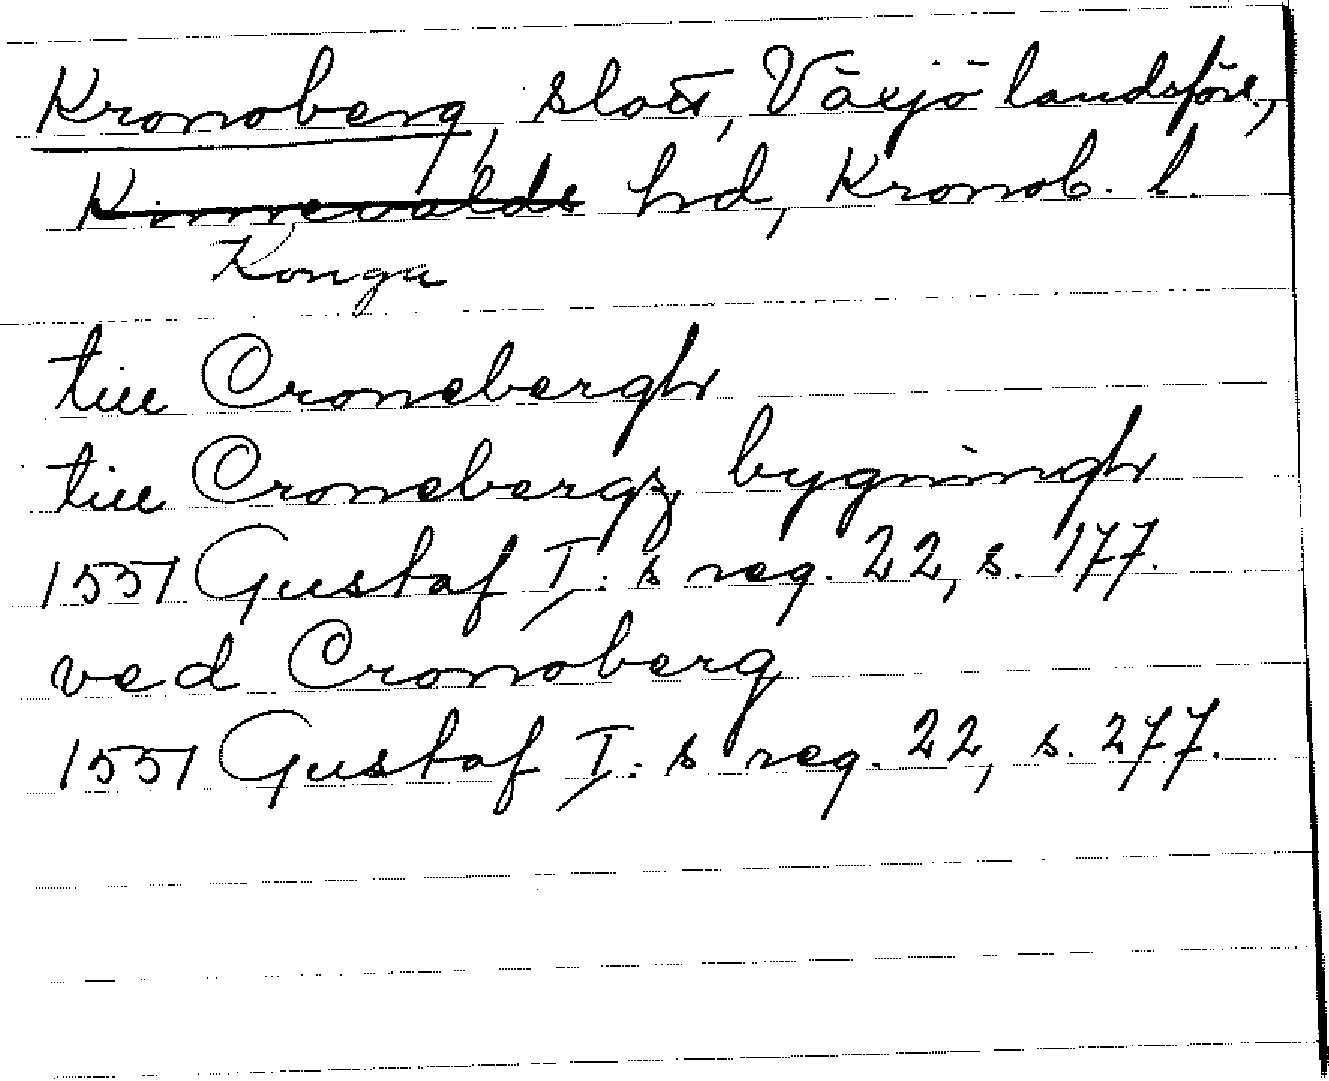 Kronoberg, slott, Växjö landsförs.,
Kinnevalds hd, Kronob. l.
Konga
till Cronebergh
till Cronebergz bygningh
1551 Gustaf I:s reg. 22, s. 177.
ved Cronoberg
1551 Gustaf I:s reg. 22, s. 277.